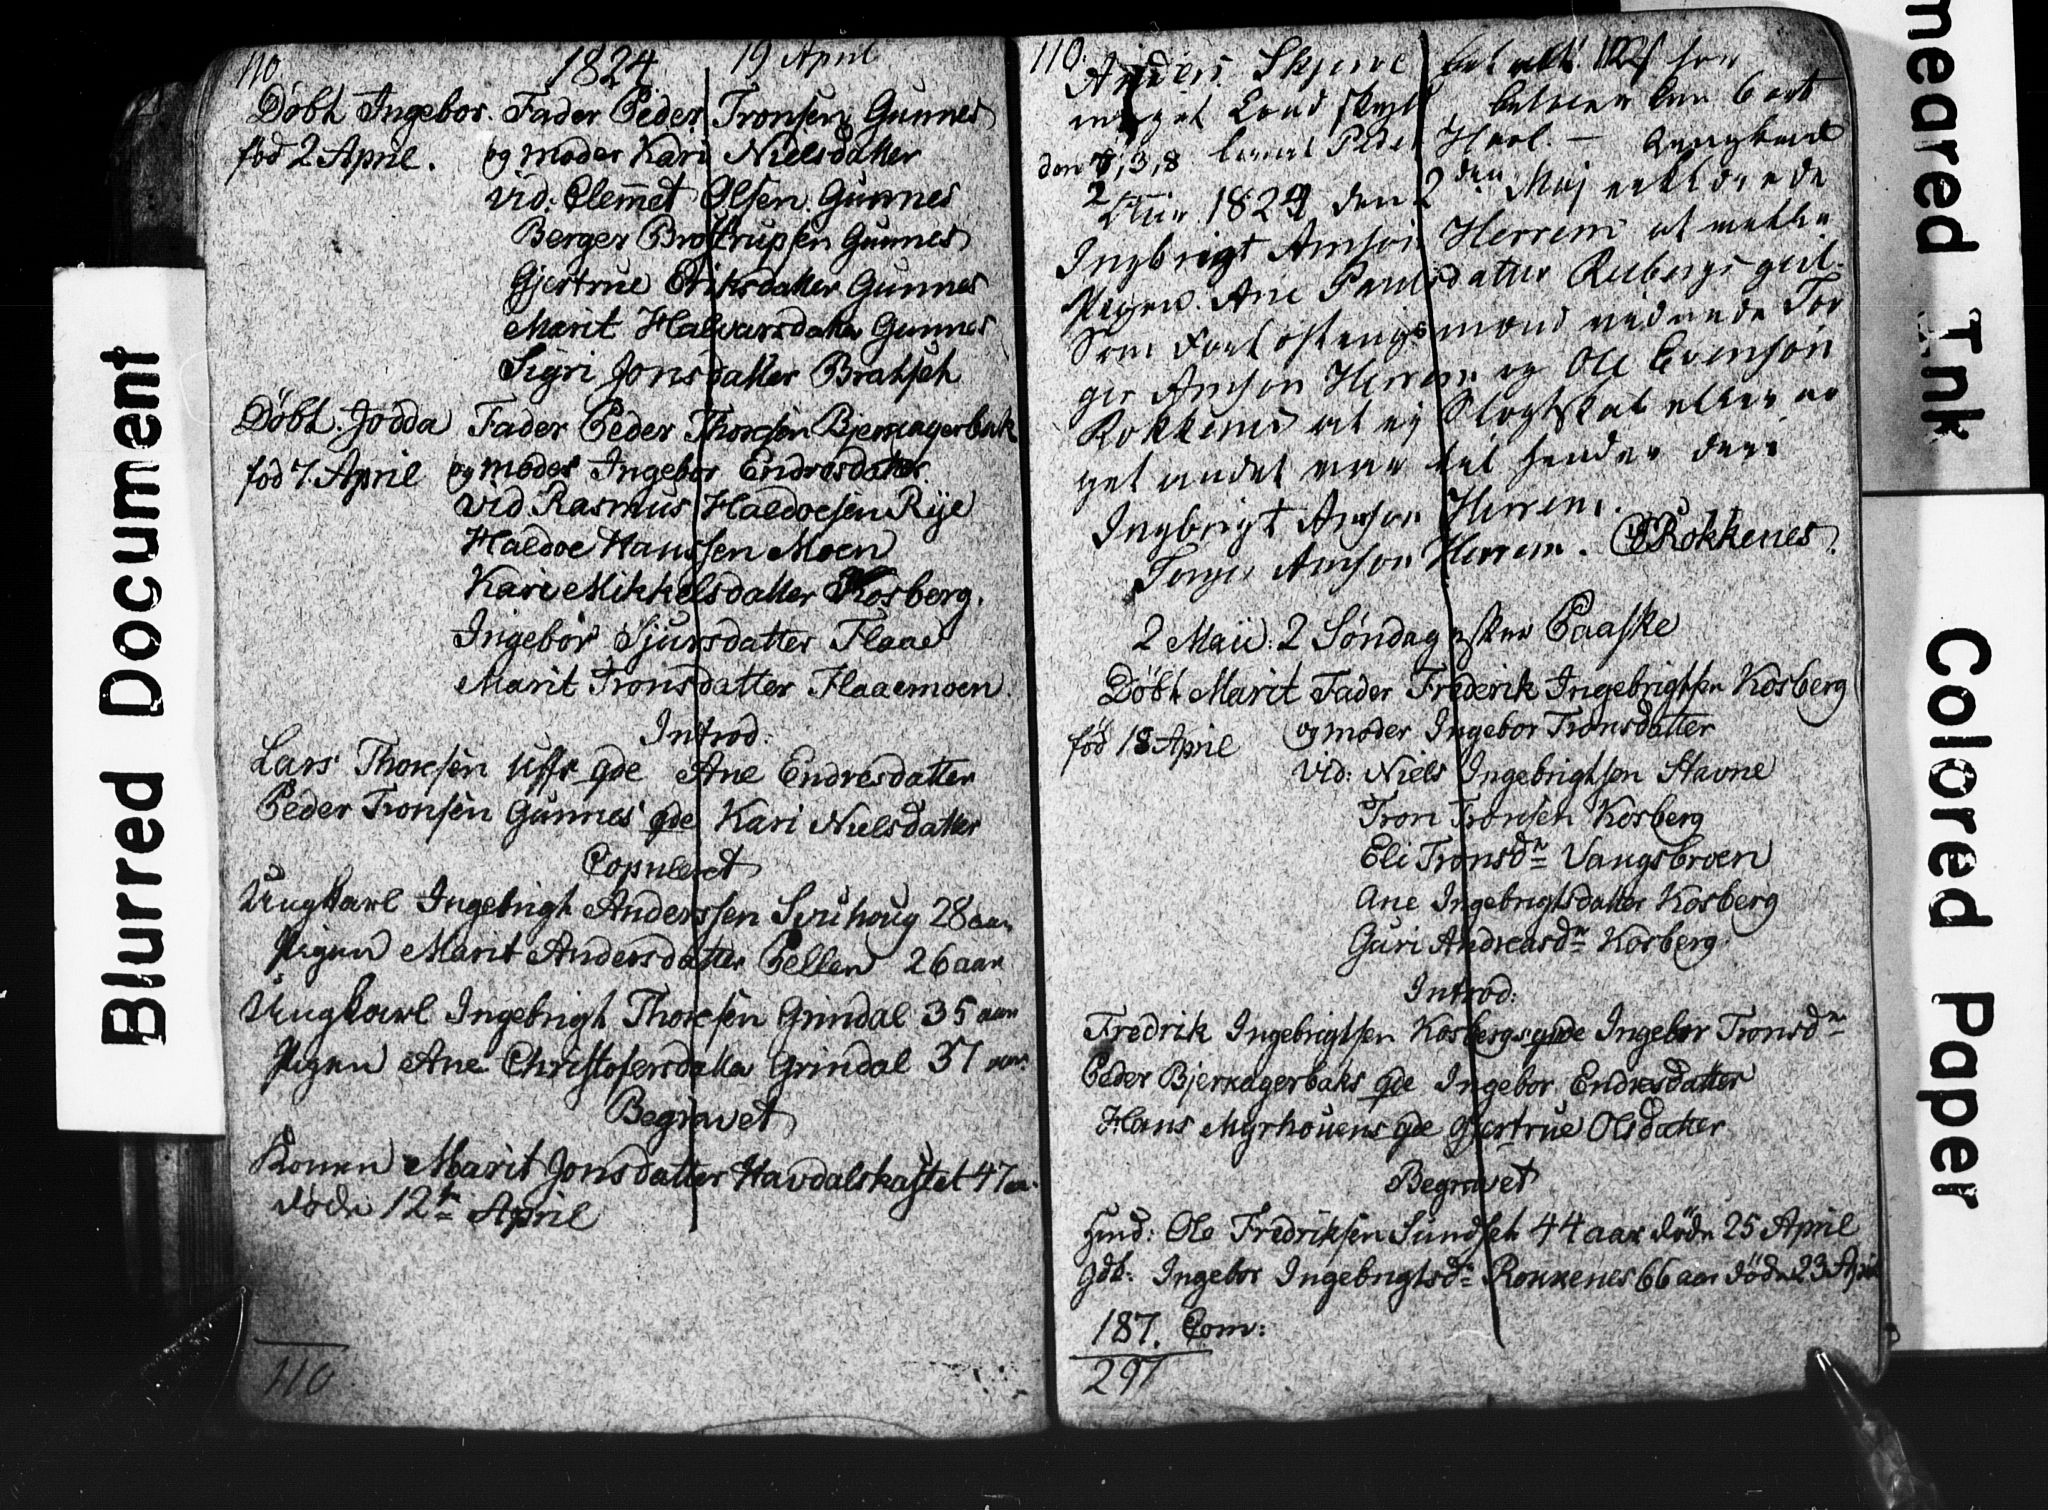 110. 1824 19 April
Døbt Ingebor. Fader Peder Tronsen Gunnes
fød 2 April. og moder Kari Nielsdatter
vid: Clemmet Olsen Gunnes
Berger Brottrupsen Gunnes
Gjertrue Eriksdatter Gunnes
Marit Halvarsdatter Gunnes
Sigri Jonsdatter Bratset
Døbt. Jodda Fader Peder Thoresen Bjerkagerbak
fød 7. April og moder Ingebor Endresdatter
vid Rasmus Haldoesen Rye
Haldoe Hanssen Moen
Kari Mikkelsdatter Kosberg.
Ingebor Sjursdatter Flaae
Marit Tronsdatter Flaaemoen.
Introd:
Lars Thoresen Uffs qde Ane Endresdatter
Peder Tronsen Gunnes qde Kari Nielsdatter
Copuleret
Ungkarl Ingebrigt Anderssen Svuhoug 28 aar
Pigen Marit Andersdatter Pellen 26 aar
Ungkarl Ingebrigt Thoresen Grindal 35 aar
Pigen Ane Christofersdatter Grindal 37 aar
Begravet
Konen Marit Jonsdatter Havdalskastet 47 aar
døde 12te April
110
110. Anders Skjerve 1824 for
meget
den 7, 3, 8
Aar 1824 den 2den Maj erklærede
Ingbrigt Amson Herrem at
Pigen. Ane Paulsdatter
Som mænd Tor
ger Amson Herrem og Ole Evenson
Rokkenes at ej Slægtskab eller no
get andet var til hinder deri
Ingbrigt Amson Herrem.
Torger Amson Herrem. Rokkenes.
2 Maii: 2 Søndag efter Paaske
Døbt Marit Fader Frederik Ingebrigtsen Kosberg
fød 18 April og moder Ingebor Tronsdatter
vid: Niels Ingebrigtsen Stavne
Tron Tronsen Kosberg
Eli Tronsdr Vangsbroen
Ane Ingebrigtsdatter Kosberg
Guri Andreasdr Kosberg.
Introd:
Fredrik Ingebrigtsen Kosbergs qde Ingebor Tronsdr
Peder Bjerkagerbaks qde Ingebor Endresdatter
Hans Myrhouens qde Gjertrue Olsdatter
Begravet
Hmd: Ole Fredriksen Sundset 44 aar døde 25 April
Gdk: Ingebor Ingebrigtsdr Rokkenes 66 aar døde 23 April
187. Com:
297
Blurred Document
meared Ink
Colored Paper